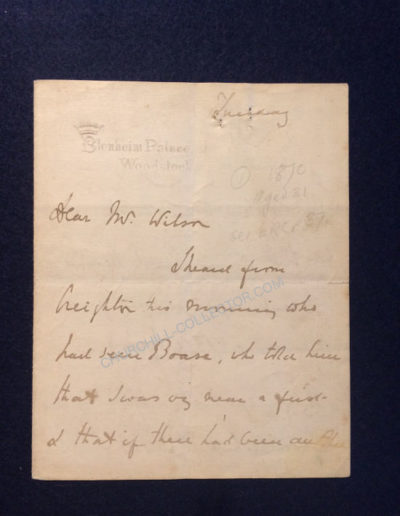 Tuesday
Blenheim Palace
Woodstock
1870
Aged 21
Dear Mr. Wilson
I heard from
Creighton this morning who
had seen Boase, who told him
that I was very near a first
& that if there had been an
CHURCHILL-COLLECTOR.COM